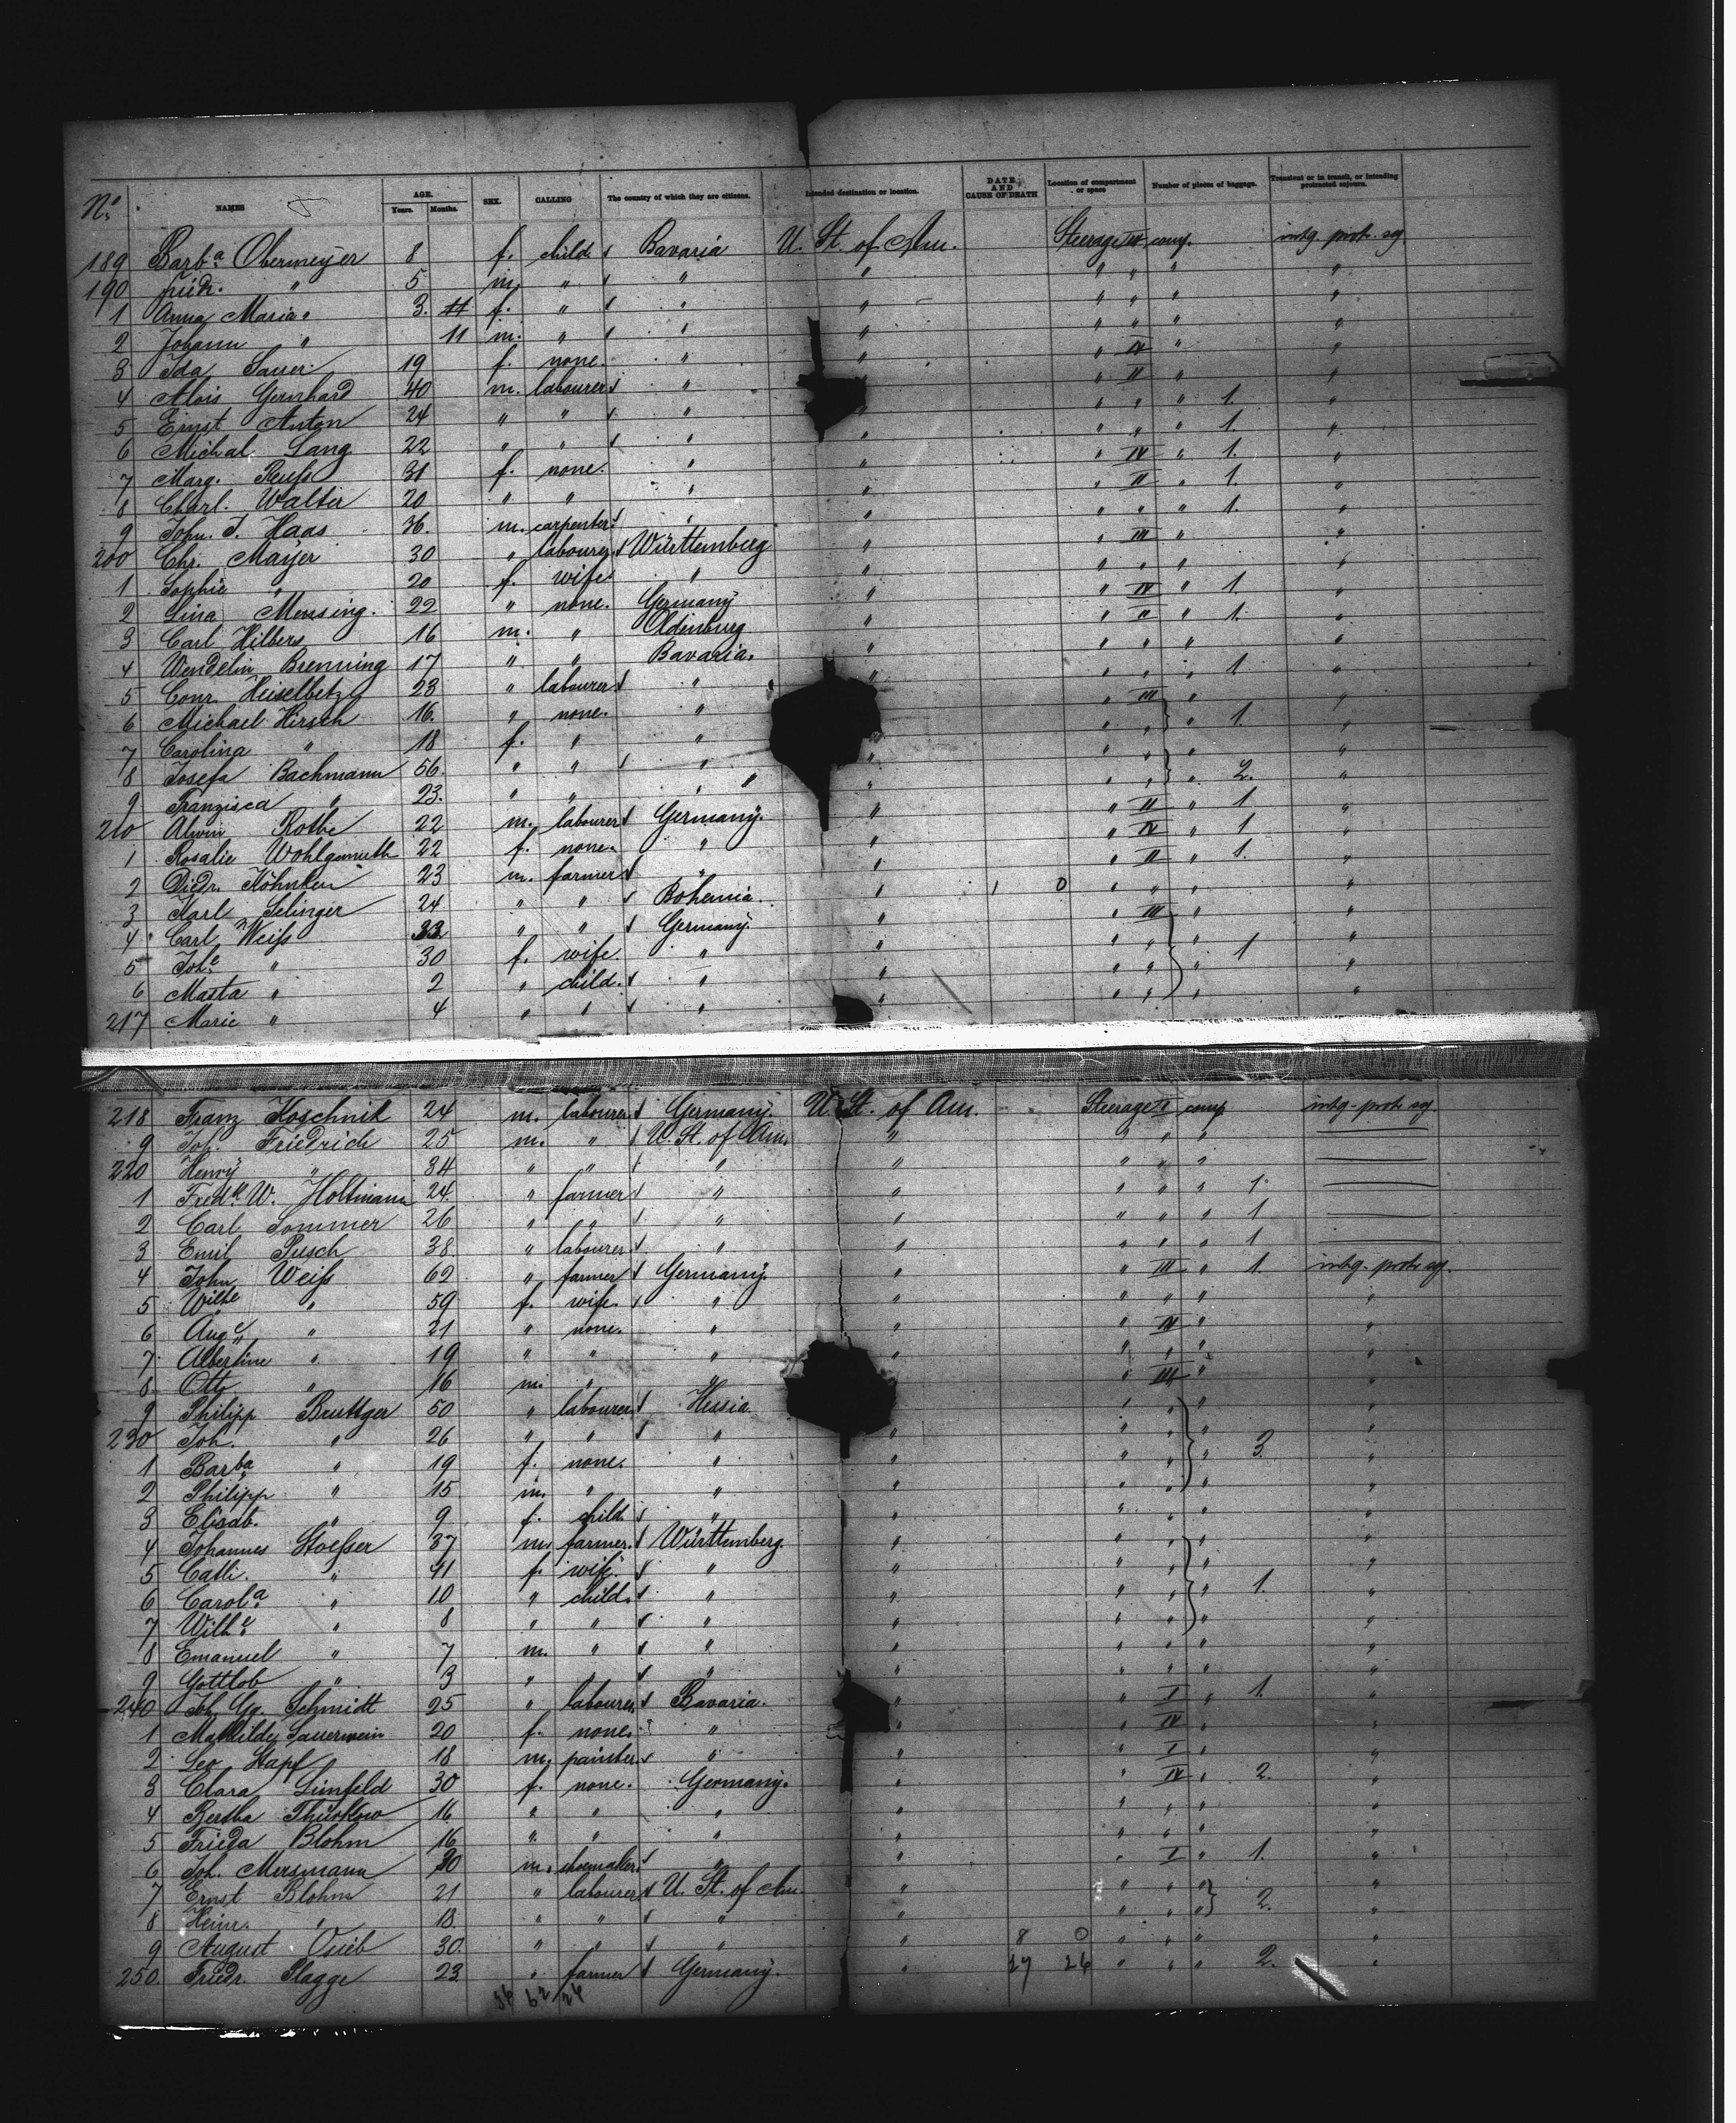 No. NAMES AGE. Years. Months. SEX. CALLING The country of which they are citizens. Intended destination or location. DATE AND CAUSE OF DEATH Location of compartment or space Number of pieces of baggage. Transient or in transit, or intending protracted sojourn.
189 Barba. Obermeyer 8 f. child Bavaria U. St. of Am. Steerage IV comp. intg. protr. sj.
190 Friedr. " 5 m. " " " " " " "
1 Anna Maria " 3. 11 f. " " " " " " "
2 Johann " 11 m. " " " " " " "
3 Ida Sauer 19 f. none. " " " IV " "
4 Alois Gernhard 40 m. labourer " " " II " "
5 Ernst Anton 24 " " " " " " " 1. "
6 Michal Lang 22 " " " " " " " 1. "
7 Marg. Reuss 31 f. none. " " " IV " 1. "
8 Charl. Walter 20 " " " " " II " 1. "
9 John. J. Haas 36. m. carpenter " " " " " 1. "
200 Chr. Mayer 30 " labourer Württemberg " " III " "
1 Sophie " 20 f. wife " " " " " "
2 Lina Mensing. 22 " none. Germany " " IV " 1. "
3 Carl Hilbers 16 m. " Oldenburg " " II " 1. "
4 Wendelin Brenning 17 " " Bavaria. " " " " "
5 Conr. Heiselbetz 23 " labourer " " " " " 1. "
6 Michael Hirsch 16. " none. " " " III " 1. "
7 Carolina " 18 f. " " " " " " "
8 Josefa Bachmann 56. " " " " " " " 2. "
9 Franzisca " 23. " " " " " " " "
210 Alwin Rothe 22 m. labourer Germany. " " II " 1 "
1 Rosalie Wohlgemuth 22 f. none. " " " IV " 1. "
2 Diedr. Köhnken 23 m. farmer " " " II " 1. "
3 Karl Selinger 24 " " Bohemia. " 1 0 " " " "
4 Carl Weiss 33 " " Germany. " " III " 1 "
5 Johe. " 30 f. wife. " " " " " "
6 Marta " 2 " child. " " " " " "
217 Marie " 4 " " " " " " " "
218 Franz Koschnik 24 m. labourer Germany. U. St. of Am. Steerage I comp. intg. protr. sj.
9 Joh. Friedrich 25 m. " U. St. of Am. " " " "
220 Henry " 34 " " " " " " "
1 Fredk. W. Holtmann 24. " farmer " " " " " 1.
2 Carl Sommer 26 " " " " " " " 1
3 Emil Pusch 38. " labourer " " " " " 1
4 John Weiss 62 " farmer Germany. " " III " 1. intg. protr. sj.
5 Wilhe " 59 f. wife. " " " " " "
6 Auge " 21 " none. " " " IV " "
7 Albertine " 19 " " " " " " " "
8 Otto " 16 m. " " " " III " "
9 Philipp Bruttger 50 " labourer Hessia " " " " 3. "
230 Joh. " 26 " " " " " " " "
1 Barba " 19 f. none. " " " " " "
2 Philipp " 15 m. " " " " " " "
3 Elisab. " 9 f. child " " " " " "
4 Johannes Stoesser 37 m. farmer. Württemberg. " " " " 1. "
5 Cath. " 41 f. wife. " " " " " "
6 Carola. " 10 " child. " " " " " "
7 Wilhe. " 8 " " " " " " " "
8 Emanuel " 7 m. " " " " " " "
9 Gottlob " 3 " " " " " " "
240 Joh. Gg. Schmidt 25 " labourer Bavaria. " " I " 1. "
1 Mathilde Sauerwein 20 f. none. " " " IV " "
2 Leo Hapf 18 m. painter " " " I " "
3 Clara Linfeld 30 f. none. Germany. " " IV " 2. "
4 Bertha Thürkow 16 " " " " " " " "
5 Frieda Blohm 16 " " " " " " " "
6 Joh. Mersmann 30 m. shoemaker " " " I " 1. "
7 Ernst Blohm 21 " labourer U. St. of Am. " " " " 2. "
8 Heinr. " 18. " " " " " " " "
9 August 30. " " " " 8 0 " " " "
250. Friedr. Plagge 23 " farmer Germany. " 27 26 " " " 2. "
36 62 26